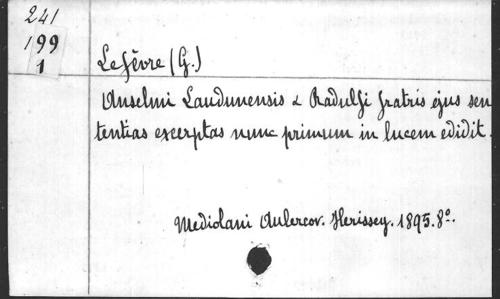 241
199
1
Lefèvre (G.)
Anselmi Laudunensis & Radulfi fratris ejus sen
tentias excerptas nunc primum in lucem edidit.
Mediolani Aulercor. Herissey. 1895. 8º.